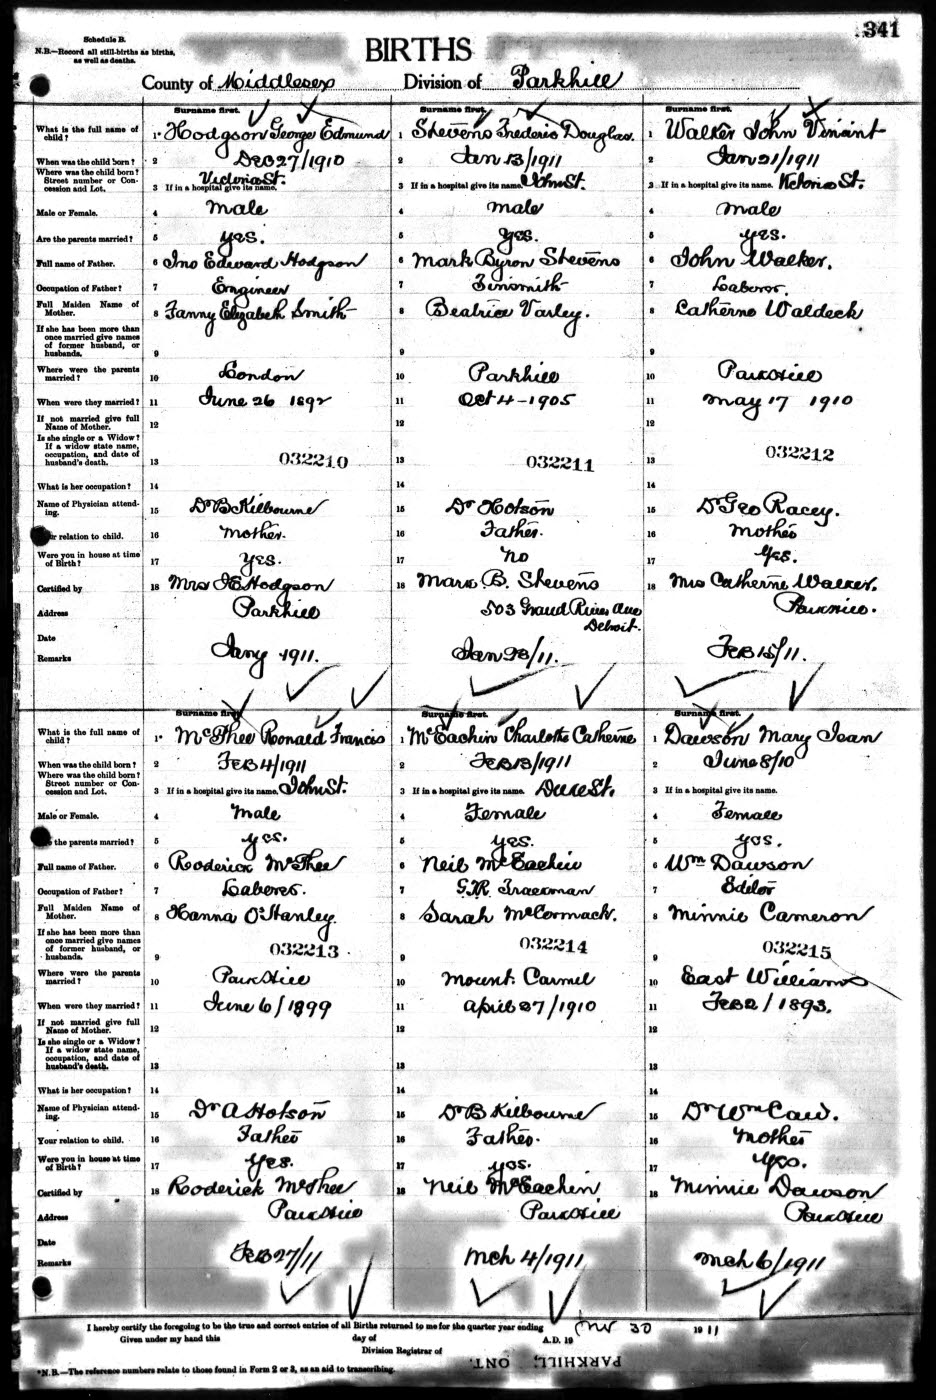 341
Schedule B.
N.B.—Record all still-births as births,
as well as deaths.
BIRTHS
County of Middlesex Division of Parkhill
Surname first. Surname first. Surname first.
What is the full name of child? 1* Hodgson George Edmund 1 Stevens Frederic Douglas. 1 Walker John Vinint
When was the child born? 2 Dec 27/1910 2 Jan 13/1911 2 Jan 21/1911
Where was the child born? Street number or Concession and Lot. 3 If in a hospital give its name. Victoria St. 3 If in a hospital give its name. John St. 3 If in a hospital give its name. Victoria St.
Male or Female. 4 Male 4 male 4 male
Are the parents married? 5 yes. 5 yes. 5 yes.
Full name of Father. 6 Jno Edward Hodgson 6 Mark Byron Stevens 6 John Walker.
Occupation of Father? 7 Engineer 7 Tinsmith 7 Laborer.
Full Maiden Name of Mother. 8 Fanny Elizabeth Smith 8 Beatrice Varley. 8 Catherne Waldeck
If she has been more than once married give names of former husband, or husbands. 9 9 9
Where were the parents married? 10 London 10 Parkhill 10 Parkhill
When were they married? 11 June 26 1892 11 Oct 4-1905 11 may 17 1910
If not married give full Name of Mother. 12 12 12
Is she single or a Widow? If a widow state name, occupation, and date of husband's death. 13 032210 13 032211 13 032212
What is her occupation? 14 14 14
Name of Physician attending. 15 Dr B Kilbourne 15 Dr Hotson 15 Dr Geo Racey.
relation to child. 16 Mother. 16 Father. 16 Mother
Were you in house at time of Birth? 17 Yes. 17 No 17 Yes.
Certified by 18 Mrs J E Hodgson 18 Mark B. Stevens 18 Mrs Catherne Walker.
Address Parkhill 503 Grand River Ave Detroit. Parkhill.
Date
Remarks Jany 1911. Jan 28/11. Feb 15/11.
Surname first. Surname first. Surname first.
What is the full name of child? 1* McPhee Ronald Francis 1 McEachin Charlotte Catherine 1 Dawson Mary Jean
When was the child born? 2 Feb 4/1911 2 Feb 13/1911 2 June 8/10
Where was the child born? Street number or Concession and Lot. 3 If in a hospital give its name. John St. 3 If in a hospital give its name. Duke St. 3 If in a hospital give its name.
Male or Female. 4 Male 4 Female 4 Female
the parents married? 5 yes. 5 yes. 5 yes.
Full name of Father. 6 Roderick McPhee 6 Neil McEachin 6 Wm Dawson
Occupation of Father? 7 Laborer. 7 G.T.R. Trackman 7 Editor
Full Maiden Name of Mother. 8 Hanna O'Hanley. 8 Sarah McCormack. 8 Minnie Cameron
If she has been more than once married give names of former husband, or husbands. 9 032213 9 032214 9 032215
Where were the parents married? 10 Parkhill 10 Mount Carmel 10 East Williams
When were they married? 11 June 6/1899 11 April 27/1910 11 Feb 2/1893.
If not married give full Name of Mother. 12 12 12
Is she single or a Widow? If a widow state name, occupation, and date of husband's death. 13 13 13
What is her occupation? 14 14 14
Name of Physician attending. 15 Dr A Hotson 15 Dr B Kilbourne 15 Dr Wm Caw.
Your relation to child. 16 Father 16 Father. 16 Mother
Were you in house at time of Birth? 17 Yes. 17 yes. 17 Yes.
Certified by 18 Roderick McPhee 18 Neil McEachin 18 Minnie Dawson
Address Parkhill Parkhill Parkhill
Date
Remarks Feb 27/11 Mch 4/1911 Mch 6/1911
I hereby certify the foregoing to be the true and correct entries of all Births returned to me for the quarter year ending 30 1911
Given under my hand this day of A.D. 19
Division Registrar of PARKHILL, ONT.
*N.B.—The reference numbers relate to those found in Form 2 or 3, as an aid to transcribing.